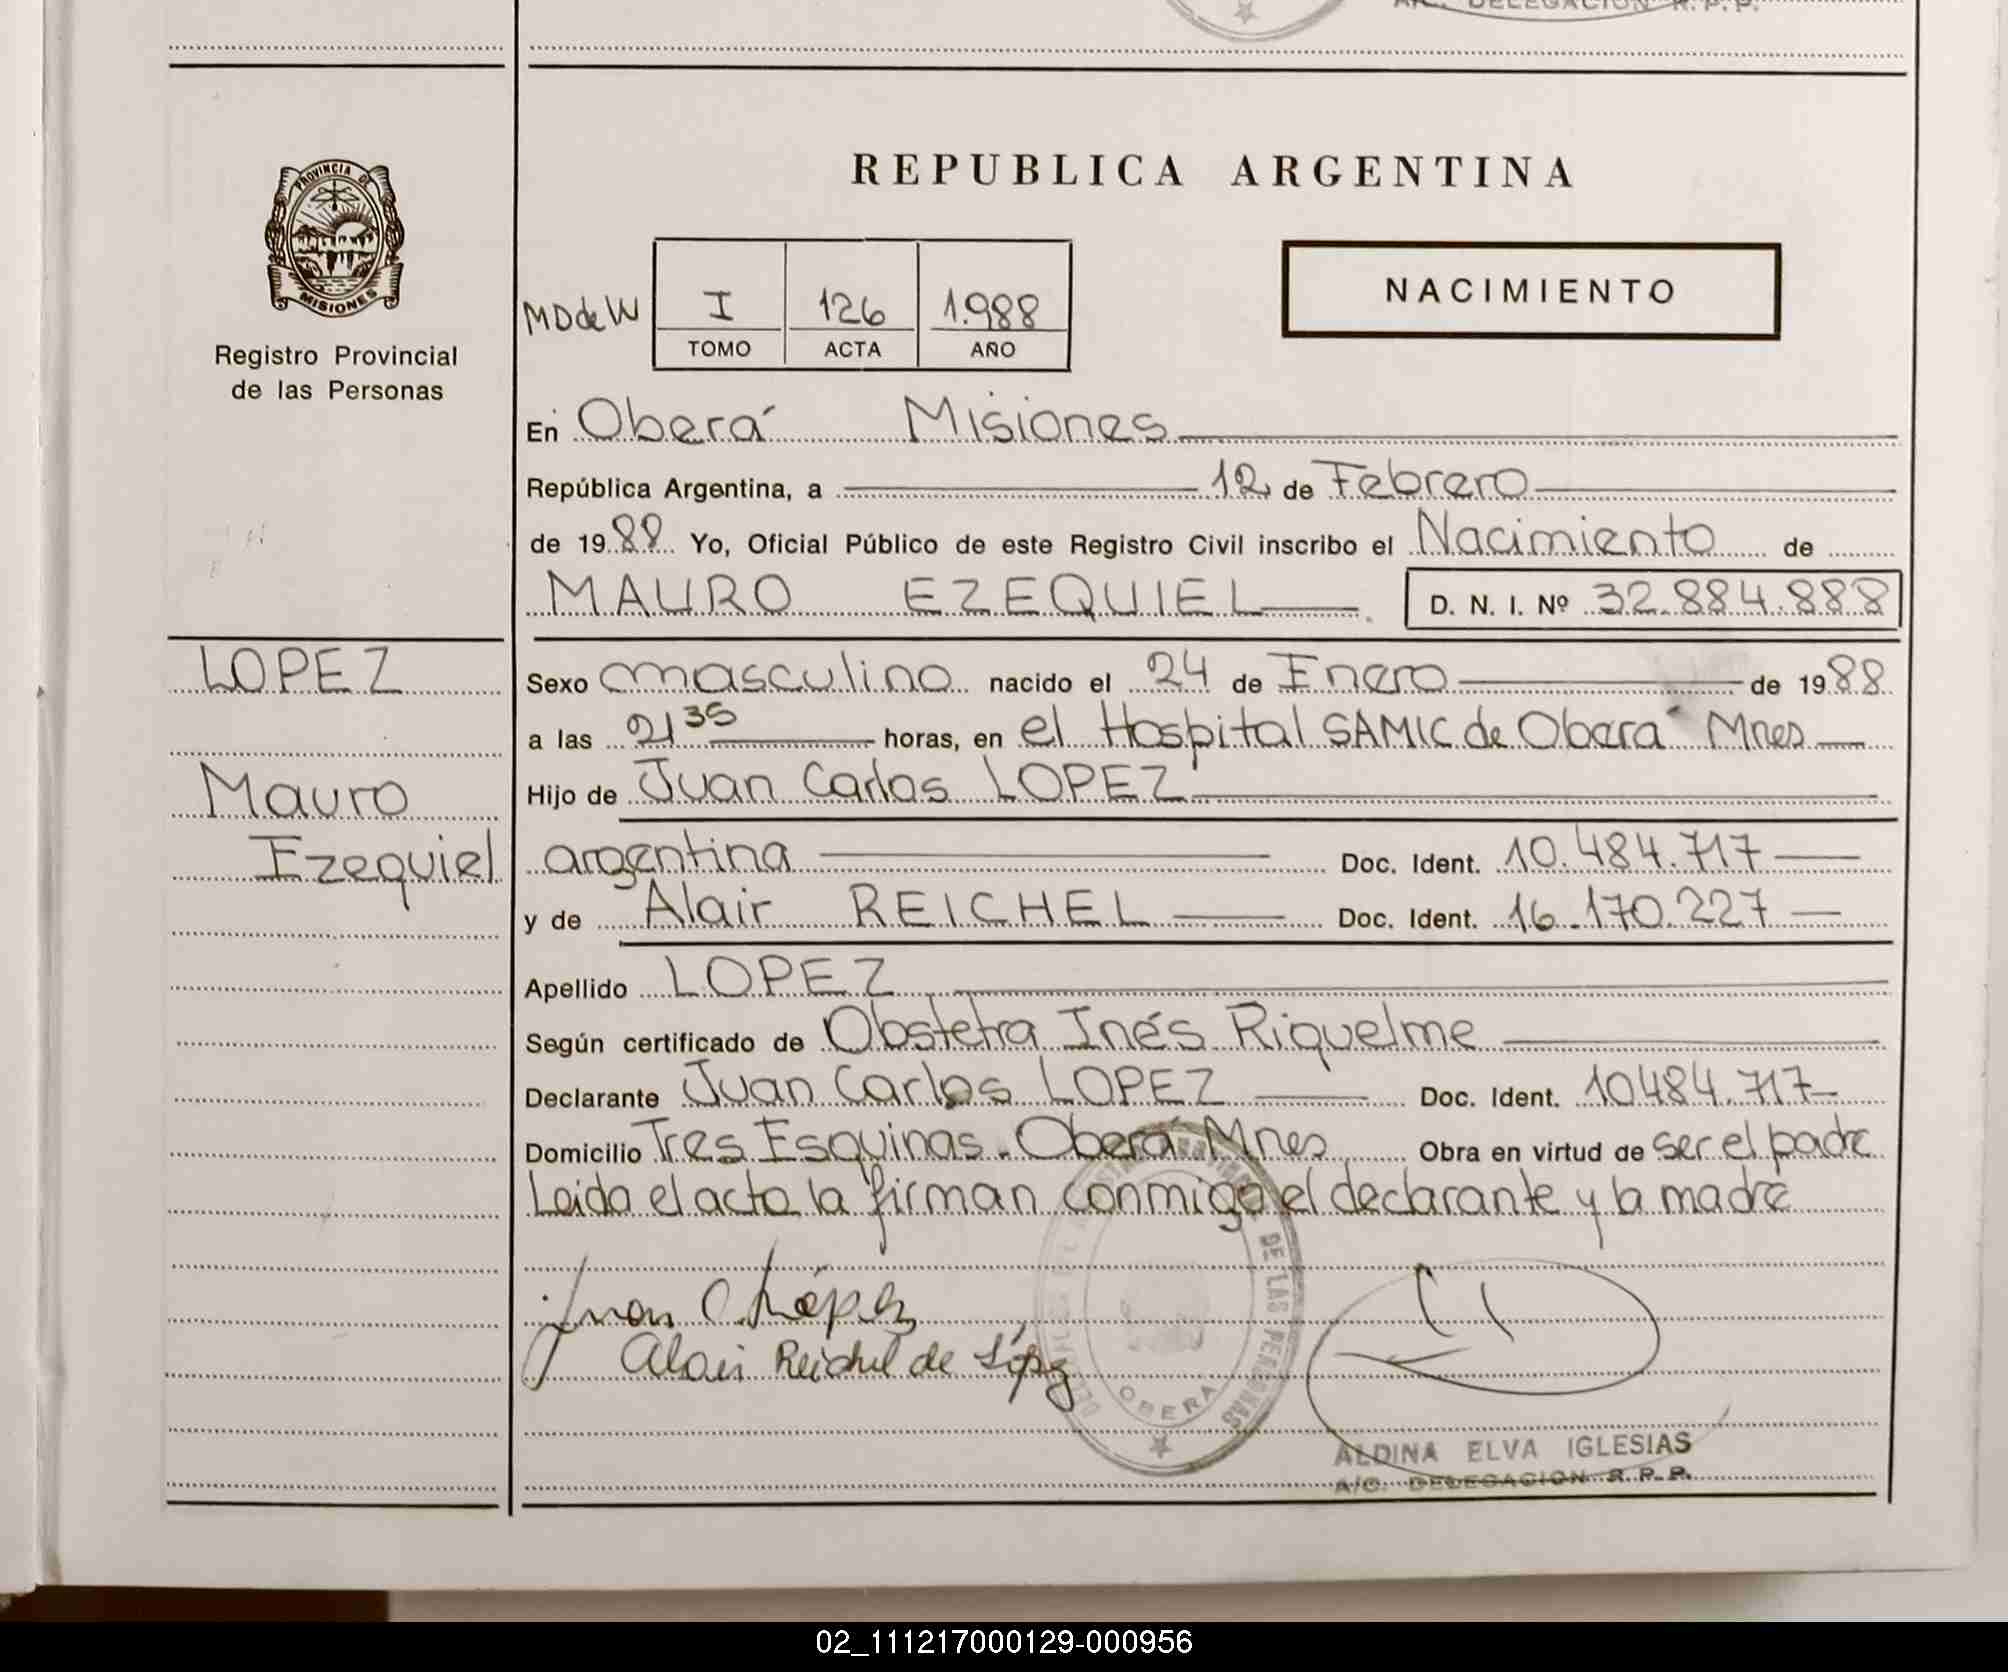 A/C. DELEGACION R.P.P.
PROVINCIA DE
MISIONES
Registro Provincial
de las Personas
REPUBLICA ARGENTINA
NACIMIENTO
MDdeW
I 126 1.988
TOMO ACTA AÑO
En Oberá Misiones
República Argentina, a 12 de Febrero
de 1988 Yo, Oficial Público de este Registro Civil inscribo el Nacimiento de
MAURO EZEQUIEL D. N. I. Nº 32.884.888
LOPEZ
Mauro
Ezequiel
Sexo masculino nacido el 24 de Enero de 1988
a las 21 35 horas, en el Hospital SAMIC de Oberá Mnes
Hijo de Juan Carlos LOPEZ
argentina Doc. Ident. 10.484.717
y de Alair REICHEL Doc. Ident. 16.170.227
Apellido LOPEZ
Según certificado de Obstetra Inés Riquelme
Declarante Juan Carlos LOPEZ Doc. Ident. 10484.717
Domicilio Tres Esquinas. Oberá Mnes Obra en virtud de ser el padre
Leida el acta la firman conmigo el declarante y la madre
Juan C. López
Alair Reichel de López
DE LAS PERSONAS
OBERA
ALDINA ELVA IGLESIAS
A/C. DELEGACION R.P.P.
02_111217000129-000956